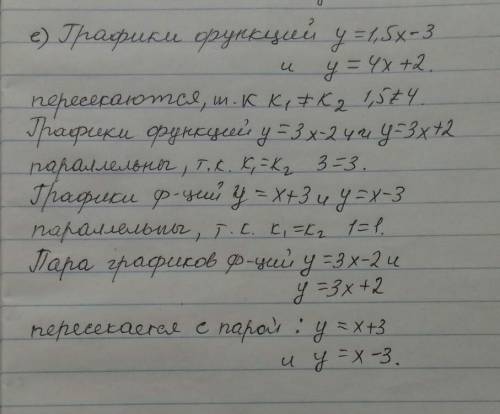 е) Графики функций y=1,5x-3
и y=4x+2.
пересекаются, т.к k₁≠k₂ 1,5≠4.
Графики функций y=3x-2 и y=3x+2
параллельны, т.к. k₁=k₂ 3=3.
Графики ф-ций y=x+3 и y=x-3
параллельны, т.к. k₁=k₂ 1=1.
Пара графиков ф-ций y=3x-2 и
y=3x+2
пересекается с парой: y=x+3
и y=x-3.